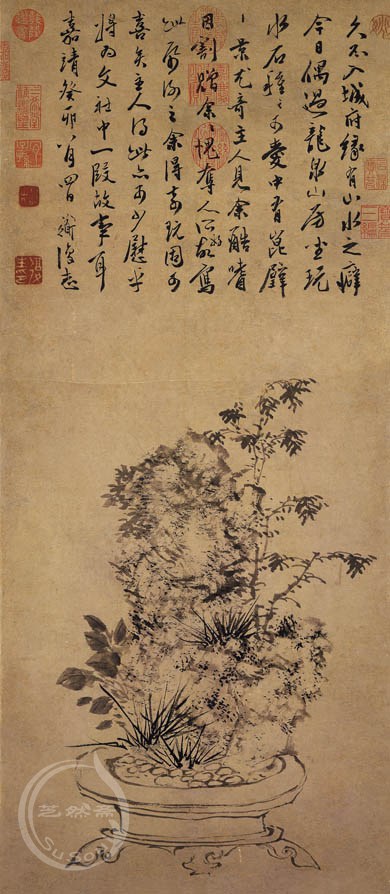 久不入城府緣有山水之癖
今日偶過龍泉山房坐玩
水石種〻可愛中有崑璧
一景尤奇主人見余酷嗜
因割贈余〻愧奪人所好寫
此酬之余得奇玩固可
喜矣主人得此亦可少慰乎
將為文社中一段故事耳
嘉靖癸卯八月四日道復志
艺然斋